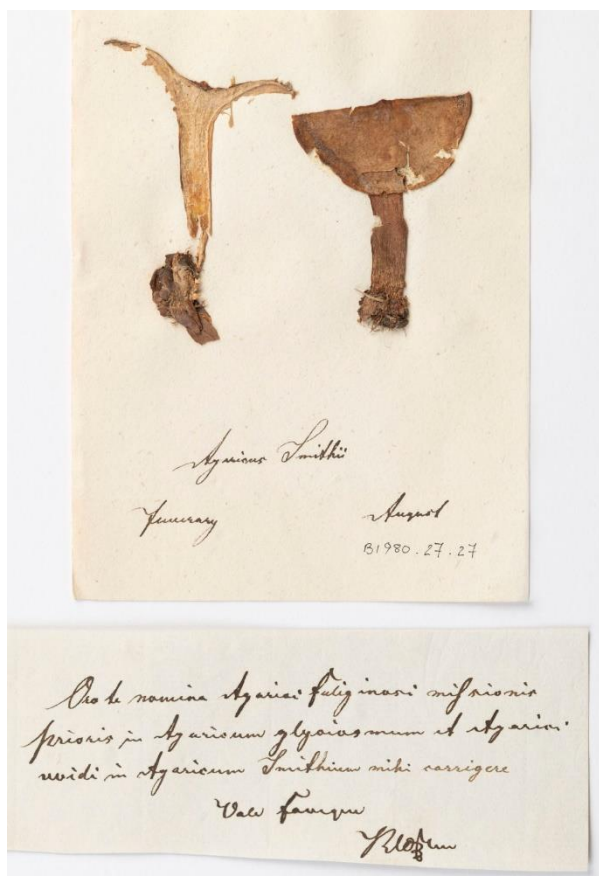 Agaricus Smithii
Inverary August
B1980.27.27
Oro te nomina Agarici fuliginosi missionis
prioris in Agaricum glyciosmum et Agarici
uvidi in Agaricum Smithium mihi corrigere
Vale faveque
Klotzsch